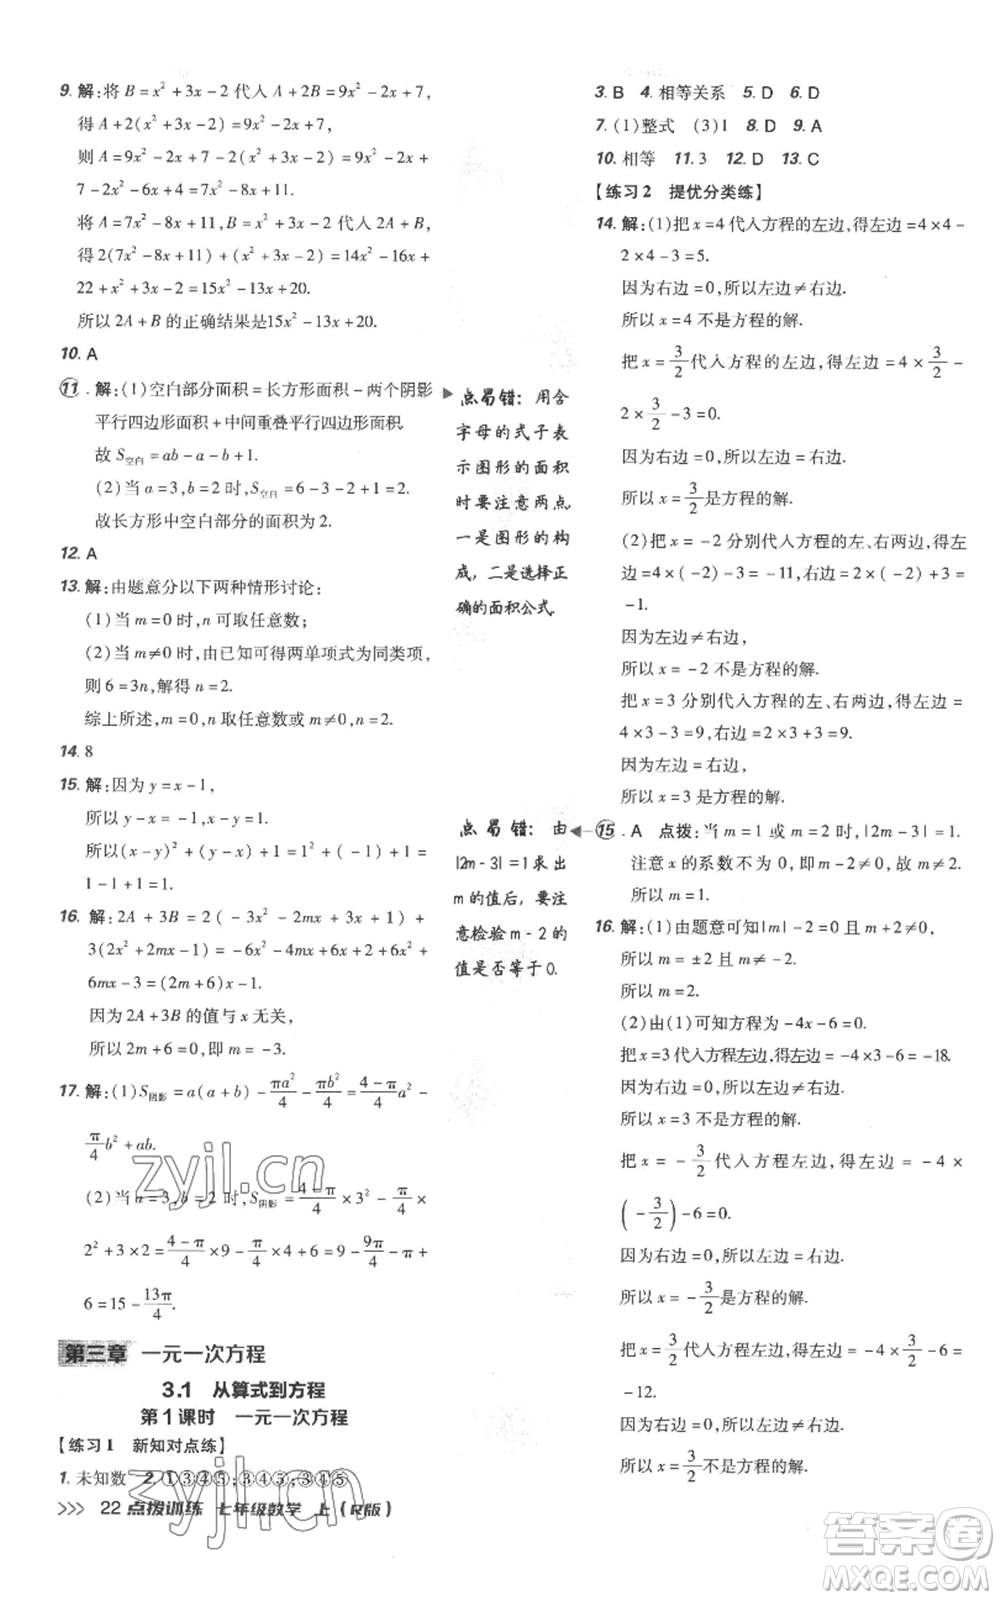 9. 解:将 B = x² + 3x - 2 代人 A + 2B = 9x² - 2x + 7,
得 A + 2(x² + 3x - 2) = 9x² - 2x + 7,
则 A = 9x² - 2x + 7 - 2(x² + 3x - 2) = 9x² - 2x +
7 - 2x² - 6x + 4 = 7x² - 8x + 11.
将 A = 7x² - 8x + 11, B = x² + 3x - 2 代人 2A + B,
得 2(7x² - 8x + 11) + (x² + 3x - 2) = 14x² - 16x +
22 + x² + 3x - 2 = 15x² - 13x + 20.
所以 2A + B 的正确结果是15x² - 13x + 20.
10. A
11. 解:(1)空白部分面积 = 长方形面积 - 两个阴影
平行四边形面积 + 中间重叠平行四边形面积.
故 S空白 = ab - a - b + 1.
(2)当 a = 3, b = 2 时, S空白 = 6 - 3 - 2 + 1 = 2.
故长方形中空白部分的面积为 2.
12. A
13. 解:由题意分以下两种情形讨论:
(1)当 m = 0 时, n 可取任意数;
(2)当 m ≠ 0 时,由已知可得两单项式为同类项,
则 6 = 3n,解得 n = 2.
综上所述, m = 0, n 取任意数或 m ≠ 0, n = 2.
14. 8
15. 解:因为 y = x - 1,
所以 y - x = -1, x - y = 1.
所以 (x - y)² + (y - x) + 1 = 1² + (-1) + 1 =
1 - 1 + 1 = 1.
16. 解: 2A + 3B = 2(-3x² - 2mx + 3x + 1) +
3(2x² + 2mx - 1) = -6x² - 4mx + 6x + 2 + 6x² +
6mx - 3 = (2m + 6)x - 1.
因为 2A + 3B 的值与 x 无关,
所以 2m + 6 = 0,即 m = -3.
17. 解:(1) S阴影 = a(a + b) - πa²/4 - πb²/4 = (4 - π)/4 a² -
π/4 b² + ab.
(2)当 a = 3, b = 2 时, S阴影 = (4 - π)/4 × 3² - π/4 ×
2² + 3 × 2 = (4 - π)/4 × 9 - π/4 × 4 + 6 = 9 - 9π/4 - π +
6 = 15 - 13π/4.
第三章 一元一次方程
3.1 从算式到方程
第1课时 一元一次方程
【练习1 新知对点练】
1. 未知数 2. ①③④⑤;③④⑤;③④⑤
>>> 22 点拨训练 七年级数学 上(R版)
点易错:用含
字母的式子表
示图形的面积
时要注意两点,
一是图形的构
成,二是选择正
确的面积公式.
点易错:由
|2m - 3| = 1求出
m的值后,要注
意检验m - 2的
值是否等于0.
3. B 4. 相等关系 5. D 6. D
7. (1)整式 (3)1 8. D 9. A
10. 相等 11. 3 12. D 13. C
【练习2 提优分类练】
14. 解:(1)把 x = 4 代人方程的左边,得左边 = 4 × 4 -
2 × 4 - 3 = 5.
因为右边 = 0,所以左边 ≠ 右边.
所以 x = 4 不是方程的解.
把 x = 3/2 代人方程的左边,得左边 = 4 × 3/2 -
2 × 3/2 - 3 = 0.
因为右边 = 0,所以左边 = 右边.
所以 x = 3/2 是方程的解.
(2)把 x = -2 分别代人方程的左、右两边,得左
边 = 4 × (-2) - 3 = -11,右边 = 2 × (-2) + 3 =
-1.
因为左边 ≠ 右边,
所以 x = -2 不是方程的解.
把 x = 3 分别代人方程的左、右两边,得左边 =
4 × 3 - 3 = 9,右边 = 2 × 3 + 3 = 9.
因为左边 = 右边,
所以 x = 3 是方程的解.
15. A 点拨:当 m = 1 或 m = 2 时, |2m - 3| = 1.
注意 x 的系数不为 0,即 m - 2 ≠ 0,故 m ≠ 2.
所以 m = 1.
16. 解:(1)由题意可知|m| - 2 = 0 且 m + 2 ≠ 0,
所以 m = ±2 且 m ≠ -2.
所以 m = 2.
(2)由(1)可知方程为 -4x - 6 = 0.
把 x = 3 代人方程左边,得左边 = -4 × 3 - 6 = -18.
因为右边 = 0,所以左边 ≠ 右边.
所以 x = 3 不是方程的解.
把 x = -3/2 代人方程左边,得左边 = -4 ×
(-3/2) - 6 = 0.
因为右边 = 0,所以左边 = 右边.
所以 x = -3/2 是方程的解.
把 x = 3/2 代人方程左边,得左边 = -4 × 3/2 - 6 =
-12.
因为右边 = 0,所以左边 ≠ 右边.
所以 x = 3/2 不是方程的解.
zyjl.cn
zyjl.cn
答案圈
MXQE.COM